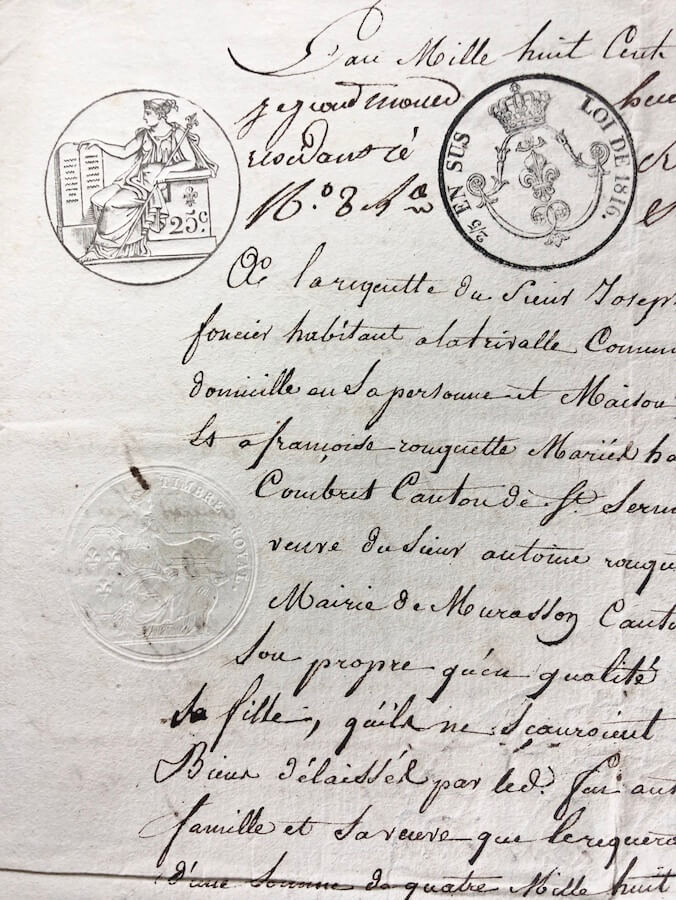 L'an Mille huit Cent
25 c
2/5 EN SUS
LOI DE 1816.
No. 8
A la requette du Sieur Joseph
foncier habitant a latrivalle Commun
domicille en Sa personne et Maison
françoise rouquette Mariés ha
Combret Canton de St. Sernin
TIMBRE ROYAL.
veuve du Sieur antoine rouque
Mairie de Murasson Canto
Son propre qu'en qualité
sa fille, qu'ils ne sçauroient
Biens délaissés par led. feu ant
famille et sa veuve que le requera
d'une Somme de quatre Mille huit